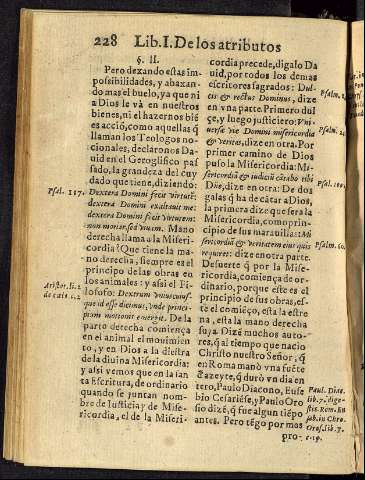 228 Lib. I. De los atributos
§. II.
Pero dexando estas im-
possibilidades, y abaxan-
do mas el buelo, ya que ni
a Dios le và en nuestros
bienes, ni el hazernos biẽ
es acció, como aquellas q̃
llaman los Teologos no-
cionales; declaronos Da-
uid en el Geroglifico pas
sado, la grandeza del cuy
dado que tiene, diziendo:
Psal. 117. Dextera Domini fecit virtutẽ:
dextera Domini exaltauit me:
dextera Domini fecit virtutem:
non moriar, sed viuam. Mano
derecha llama a la Miseri-
cordia? Que tiene la ma-
no derecha, siempre es el
principio de las obras en
los animales: y assi el Fi-
Aristot. li. 2.
de cælo c. 2.
losofo: Dextrum vniuscuius-
que id esse dicimus, vnde princi-
pium motionis emergit. De la
parte derecha comiença
en el animal el mouimien
to, y en Dios a la diestra
de la diuina Misericordia:
y assi vemos que en la san
ta Escritura, de ordinario
quando se juntan nom-
bre de Iusticia, y de Mise-
ricordia, el de la Miseri-
cordia precede, digalo Da
uid, por todos los demas
escritores sagrados: Dul-
cis & rectus Dominus, dize
Psalm.
en vna parte. Primero dul
çe, y luego justiciero: Vni-
uersæ viæ Domini misericordia
Psalm. 24.
& veritas, dize en otra. Por
primer camino de Dios
puso la Misericordia: Mi-
sericordiã & iudiciũ cãtabo tibi
Dñe, dize en otra: De dos
Psal. 100.
galas q̃ ha de cãtar a Dios,
la primera dize que sera la
Misericordia, como prin-
cipio de sus marauillas: Mi
sericordiã & veritatem eius quis
Psalm. 60.
requiret: dize en otra parte.
De suerte q̃ por la Mise-
ricordia, comiença de or-
dinario, porque este es el
principio de sus obras, es-
te el comiẽço, esta la estre
na, esta la mano derecha
suya. Dizẽ muchos auto-
res, q̃ al tiempo que nacio
Christo nuestro Señor, q̃
en Roma manò vna fuẽte
d'azeyte, q̃ durò vn dia en
tero, Paulo Diacono, Euse
Paul. Diac.
lib. 7. di ge-
bio Cesariẽse, y Paulo Oro
stis. Rom. Eu
seb. in Chro
sio dizẽ, q̃ fue algun tiẽpo
antes. Pero tẽgo por mos
Oros. lib. 7.
pro-